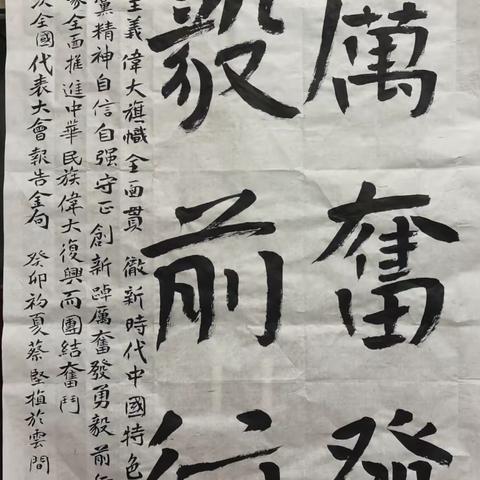 厲奮發
毅前行
主義偉大旗幟全面貫徹新時代中國特色
黨精神自信自强守正創新踔厲奮發勇毅前行
家全面推進中華民族偉大復興而團結奮鬥
次全國代表大會報告金句 癸卯初夏蔡堅植於雲間